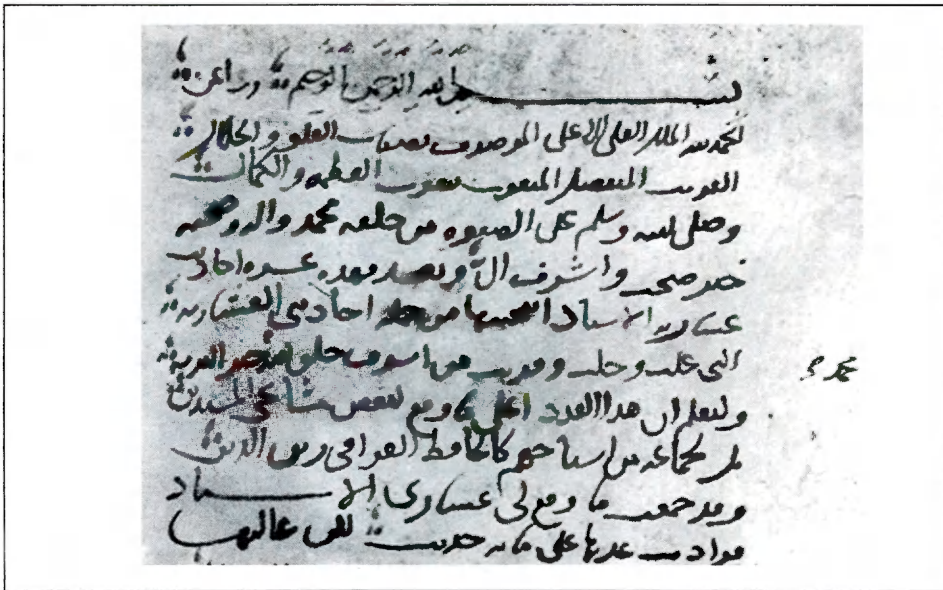 بسم الله الرحمن الرحيم
الحمد لله الملك العلي الأعلى الموصوف بصفات العلو والجلال
القريب المنعوت بنعوت العظمة والكمال
وصلى الله وسلم على الصفوة من خلقه محمد وآله وصحبه
خير صحب وأشرف آل وبعد فهذه عشرة أحاديث
عشارية الإسناد من جملة أحاديثي العشارية
التي علت وحلت وقربت من أشرف خلق
وليعلم أن هذا العدد أعلى ما وقع لبعض مشايخي المسندين
بل لجماعة من أشياخهم كالحافظ العراقي وزين الدين
وقد جمعت ما وقع لي عشاري الإسناد
فزادت عدتها على مائة حديث لكن غالبها
محمد